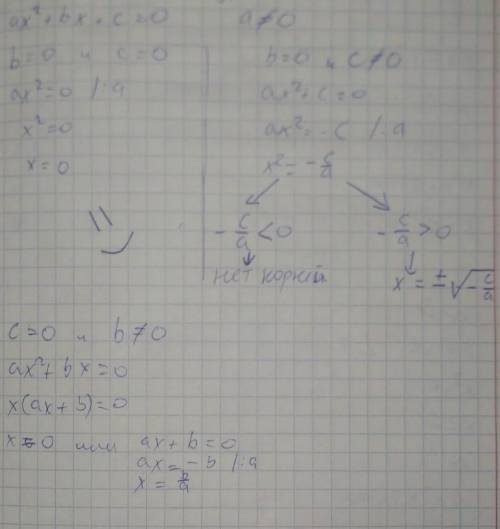 ax² + bx + c = 0     a ≠ 0
b = 0 и c = 0
ax² = 0 /:a
x² = 0
x = 0
b = 0 и c ≠ 0
ax² + c = 0
ax² = -c /:a
x² = -c/a
-c/a < 0     -c/a > 0
нет корней     x = ±√(-c/a)
c = 0 и b ≠ 0
ax² + bx = 0
x(ax + b) = 0
x = 0 или ax + b = 0
ax = -b /:a
x = b/a